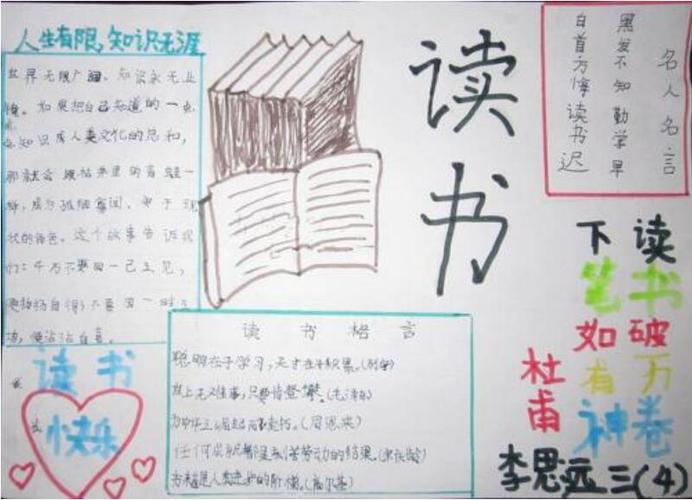 人生有限,知识无涯
世界无限广阔、知识永无止
境。如果把自己知道的一点
点知识 人类文化的总和,
那就会 枯井里的青蛙一
样,成为孤陋寡闻、安于现
状的角色。这个故事告诉我
们:千万不要因一己之见,
便 扬自得;不要因一时之
功,便沾沾自喜。
读书
快乐
读书
读书格言
聪明在于学习,天才在于积累。(列宁)
世上无难事,只要肯登攀。(毛泽东)
为中华之崛起而读书。(周恩来)
任何成就都是刻苦劳动的结果。(宋庆龄)
书籍是人类进步的阶梯。(高尔基)
名人名言
黑发不知勤学早
白首方悔读书迟
读书破万卷
下笔如有神
杜甫
李思远 三(4)